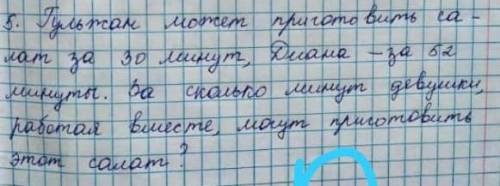 5. Гульжан может приготовить са-
лат за 30 минут, Диана – за 52
минуты. За сколько минут девушки,
работая вместе, могут приготовить
этот салат?